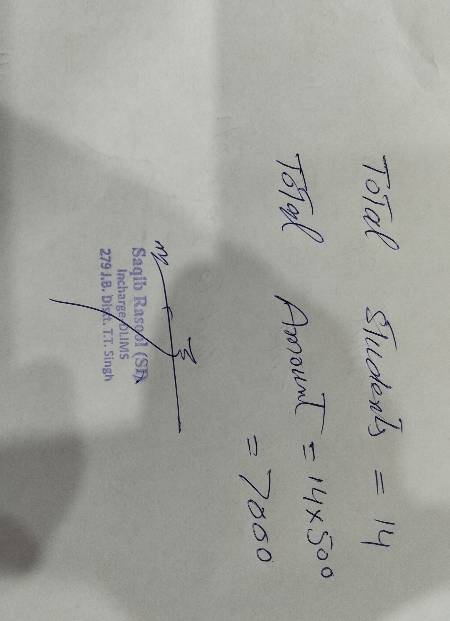 Total Students = 14
Total Amount = 14×500
= 7000
Saqib Rasool (SI)
Incharge DLIMS
279 J.B. Distt. T.T. Singh